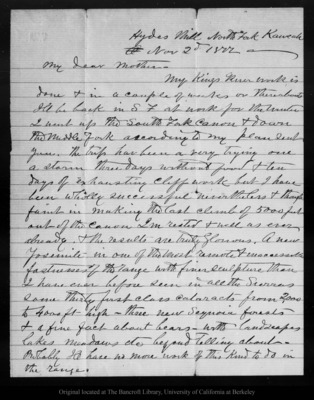 Hydes Mill, North Fork Kaweah
Nov 2d 1877
My dear Mother
My Kings River work is
done & in a couple of weeks or thereabouts
Ill be back in S F at work for the winter
I went up the South Fork Canon & down
the Middle Fork according to my plan sent
you. the trip has been a very trying one
a storm three days without food & ten
days of exhausting cliff work but I have
been wholly successful nevertheless & though
faint in making the last climb of 5000 feet
out of the canon Im rested & well as ever
already. & the results are truly glorious, a new
Yosemite in one of the most remote & inaccessible
fastnesses of the range with finer sculpture than
I have ever before seen in all the Sierras
some thirty first class cataracts from 2000
to 4000 ft high - three new Sequoia forests
& a fine fact about bears - with landscapes
lakes meadows etc beyond telling about -
I'll have no more work of this kind to do in
the range
Original located at The Bancroft Library, University of California at Berkeley